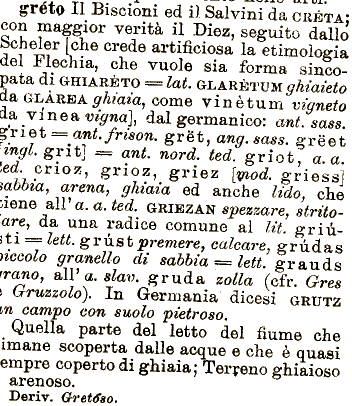 gréto Il Biscioni ed il Salvini da CRÉTA;
con maggior verità il Diez, seguito dallo
Scheler [che crede artificiosa la etimologia
del Flechia, che vuole sia forma sinco-
pata di GHIARÈTO = lat. GLARÈTUM ghiaieto
da GLÀREA ghiaia, come vinètum vigneto
da vìnea vigna], dal germanico: ant. sass.
griet = ant. frison. grët, ang. sass. grëet
[ingl. grit] = ant. nord. ted. griot, a. a.
ted. crioz, grioz, griez [mod. griess]
sabbia, arena, ghiaia ed anche lido, che
tiene all' a. a. ted. GRIEZAN spezzare, strito-
lare, da una radice comune al lit. griú-
sti = lett. grúst premere, calcare, grúdas
piccolo granello di sabbia = lett. grauds
grano, all' a. slav. gruda zolla (cfr. Gres
e Gruzzolo). In Germania dicesi GRUTZ
un campo con suolo pietroso.
Quella parte del letto del fiume che
rimane scoperta dalle acque e che è quasi
sempre coperto di ghiaia; Terreno ghiaioso
arenoso.
Deriv. Gretóso.